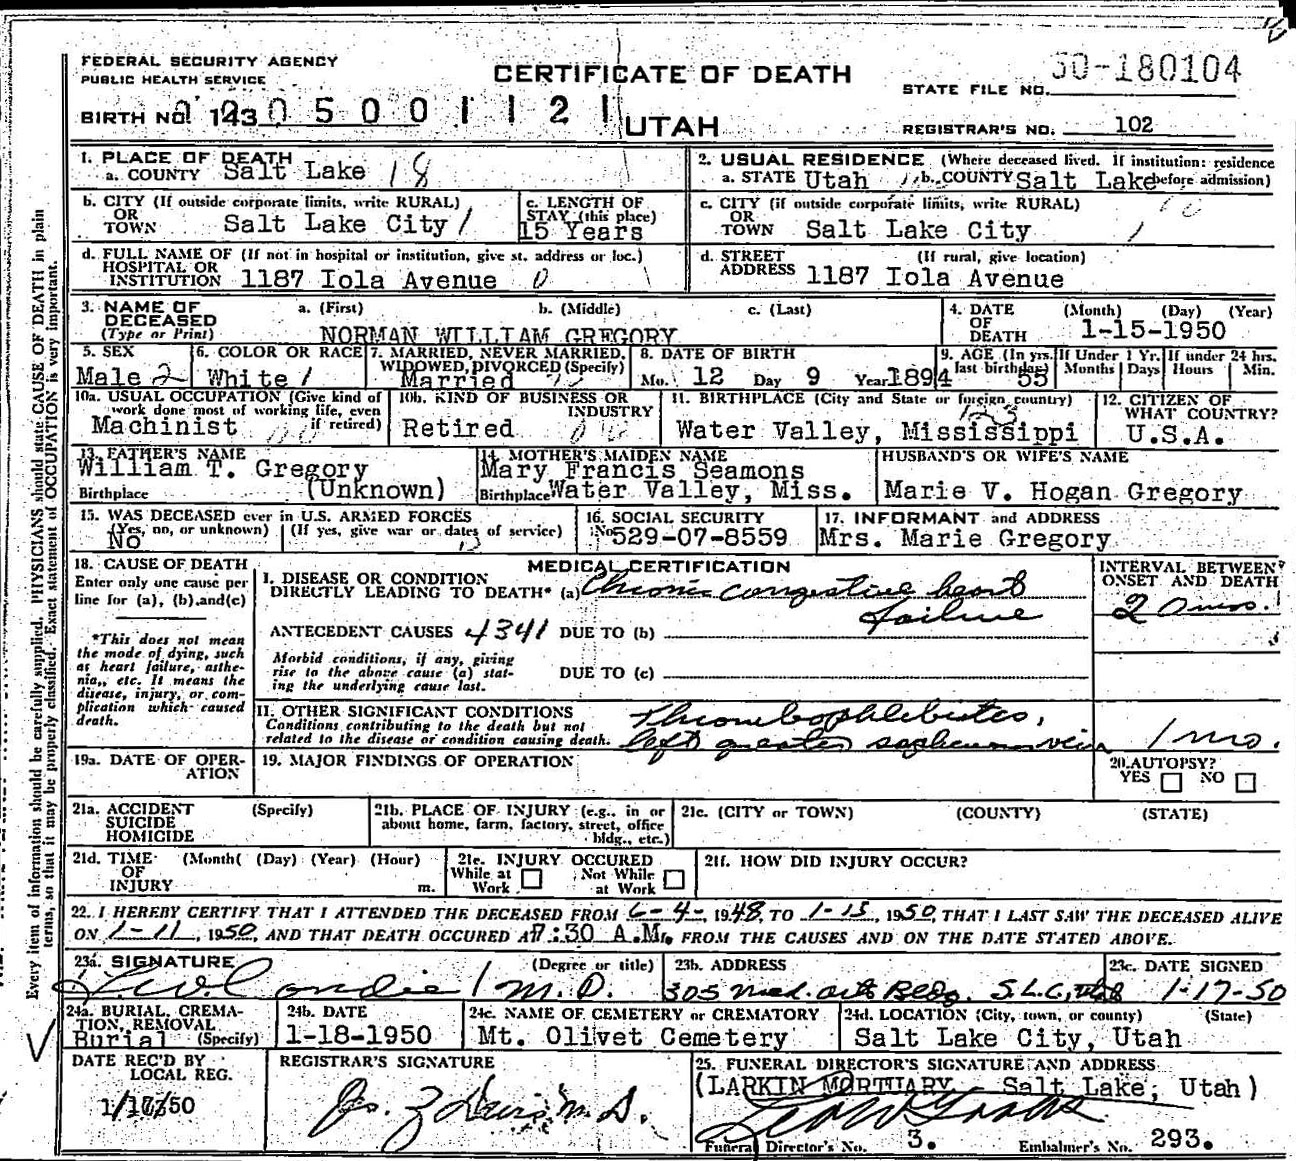 FEDERAL SECURITY AGENCY
PUBLIC HEALTH SERVICE
CERTIFICATE OF DEATH
STATE FILE NO. 50-180104
BIRTH NO. 143 0 5 0 0 1 1 2 1
UTAH
REGISTRAR'S NO. 102
Every item of information should be carefully supplied. PHYSICIANS should state CAUSE OF DEATH in plain
terms, so that it may be properly classified. Exact statement of OCCUPATION is very important.
1. PLACE OF DEATH
a. COUNTY Salt Lake 18
2. USUAL RESIDENCE (Where deceased lived. If institution: residence
a. STATE Utah b. COUNTY Salt Lake before admission)
b. CITY (If outside corporate limits, write RURAL)
OR
TOWN Salt Lake City 1
c. LENGTH OF
STAY (this place)
15 Years
c. CITY (if outside corporate limits, write RURAL)
OR
TOWN Salt Lake City 1
d. FULL NAME OF (If not in hospital or institution, give st. address or loc.)
HOSPITAL OR
INSTITUTION 1187 Iola Avenue 0
d. STREET (If rural, give location)
ADDRESS 1187 Iola Avenue
3. NAME OF DECEASED
(Type or Print)
a. (First) b. (Middle) c. (Last)
NORMAN WILLIAM GREGORY
4. DATE OF DEATH (Month) (Day) (Year)
1-15-1950
5. SEX
Male 2
6. COLOR OR RACE
White 1
7. MARRIED, NEVER MARRIED,
WIDOWED, DIVORCED (Specify)
Married
8. DATE OF BIRTH
Mo. 12 Day 9 Year 1894
9. AGE (In yrs. last birthday) 55
If Under 1 Yr. Months Days
If under 24 hrs. Hours Min.
10a. USUAL OCCUPATION (Give kind of
work done most of working life, even
if retired)
Machinist
10b. KIND OF BUSINESS OR
INDUSTRY
Retired
11. BIRTHPLACE (City and State or foreign country)
123
Water Valley, Mississippi
12. CITIZEN OF
WHAT COUNTRY?
U.S.A.
13. FATHER'S NAME
William T. Gregory
Birthplace (Unknown)
14. MOTHER'S MAIDEN NAME
Mary Francis Seamons
Birthplace Water Valley, Miss.
HUSBAND'S OR WIFE'S NAME
Marie V. Hogan Gregory
15. WAS DECEASED ever in U.S. ARMED FORCES
(Yes, no, or unknown) (If yes, give war or dates of service)
No
16. SOCIAL SECURITY
No 529-07-8559
17. INFORMANT and ADDRESS
Mrs. Marie Gregory
18. CAUSE OF DEATH
Enter only one cause per
line for (a), (b), and (c)
*This does not mean
the mode of dying, such
as heart failure, asthe-
nia, etc. It means the
disease, injury, or com-
plication which caused
death.
MEDICAL CERTIFICATION
INTERVAL BETWEEN
ONSET AND DEATH
I. DISEASE OR CONDITION
DIRECTLY LEADING TO DEATH* (a) Chronic congestive heart
failure
ANTECEDENT CAUSES 4341 DUE TO (b)
Morbid conditions, if any, giving
rise to the above cause (a) stat-
ing the underlying cause last.
DUE TO (c)
II. OTHER SIGNIFICANT CONDITIONS
Conditions contributing to the death but not
related to the disease or condition causing death.
Thrombophlebitis,
left greater saphenous vein 1 mo.
19a. DATE OF OPER-
ATION
19. MAJOR FINDINGS OF OPERATION
20. AUTOPSY?
YES NO
21a. ACCIDENT (Specify)
SUICIDE
HOMICIDE
21b. PLACE OF INJURY (e.g., in or
about home, farm, factory, street, office
bldg., etc.)
21c. (CITY or TOWN) (COUNTY) (STATE)
21d. TIME (Month) (Day) (Year) (Hour)
OF
INJURY m.
21e. INJURY OCCURED
While at Work Not While at Work
21f. HOW DID INJURY OCCUR?
22. I HEREBY CERTIFY THAT I ATTENDED THE DECEASED FROM 6-4-, 1948, TO 1-15, 1950, THAT I LAST SAW THE DECEASED ALIVE
ON 1-11, 1950, AND THAT DEATH OCCURED AT 7:30 A.M. FROM THE CAUSES AND ON THE DATE STATED ABOVE.
23a. SIGNATURE (Degree or title)
M.D.
23b. ADDRESS
305 Med. Arts Bldg. S.L.C, Utah
23c. DATE SIGNED
1-17-50
24a. BURIAL, CREMA-
TION, REMOVAL
Burial (Specify)
24b. DATE
1-18-1950
24c. NAME OF CEMETERY or CREMATORY
Mt. Olivet Cemetery
24d. LOCATION (City, town, or county) (State)
Salt Lake City, Utah
DATE REC'D BY
LOCAL REG.
REGISTRAR'S SIGNATURE
25. FUNERAL DIRECTOR'S SIGNATURE AND ADDRESS
(LARKIN MORTUARY - Salt Lake, Utah)
Funeral Director's No. 3. Embalmer's No. 293.